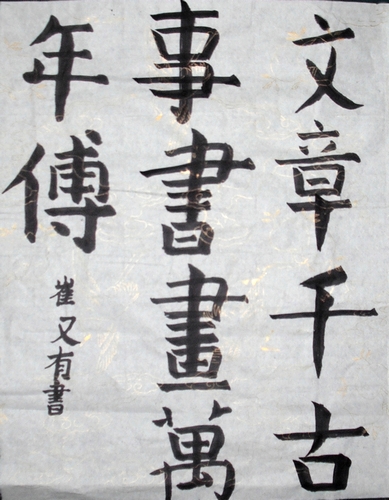 文章千古
事書畫萬
年傅
崔又有書